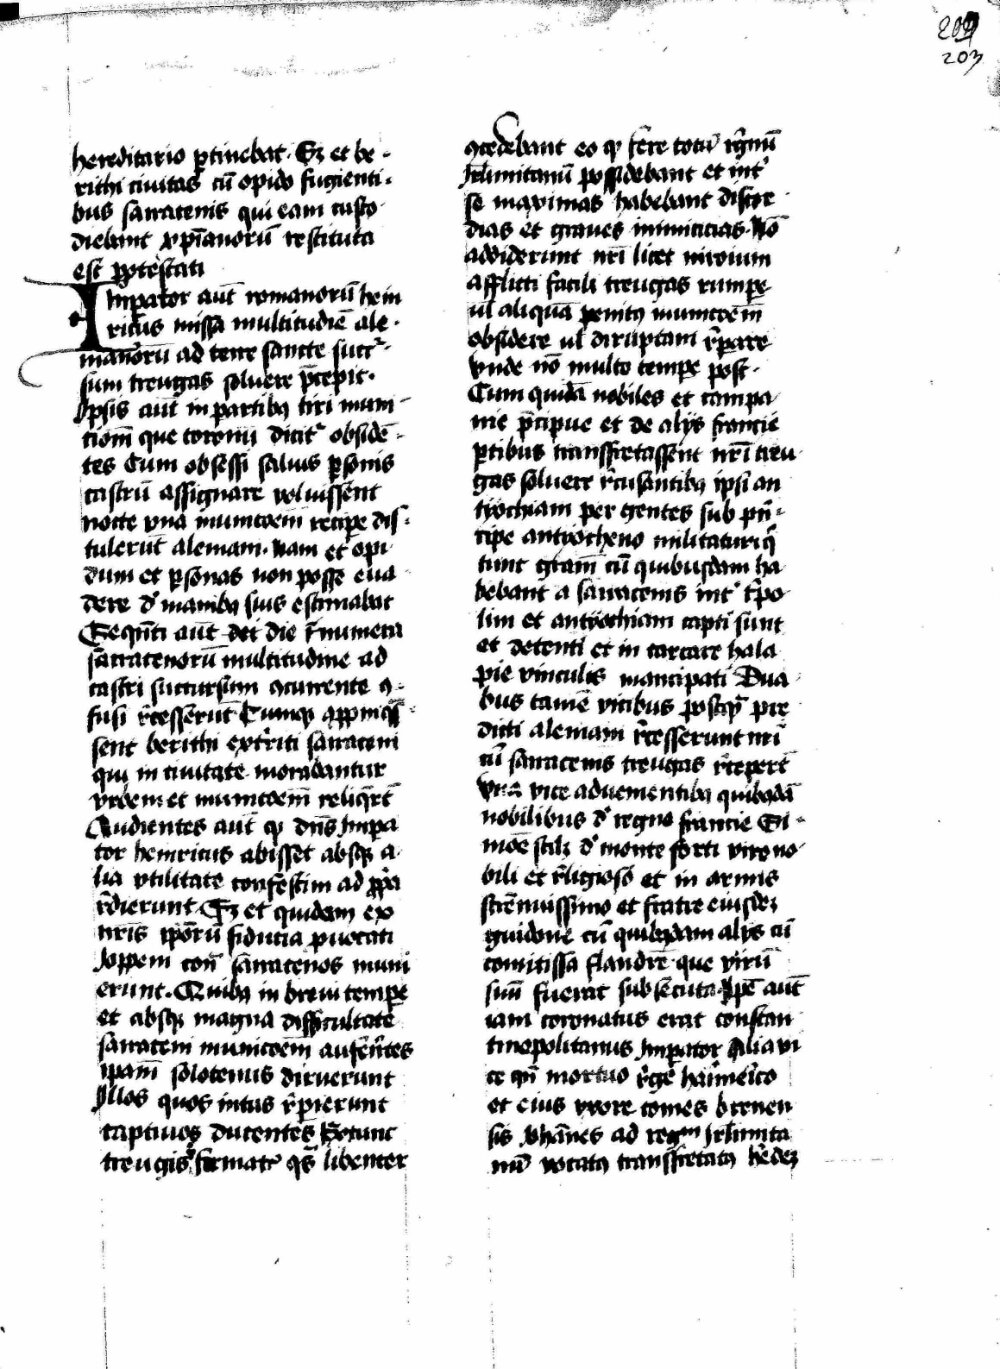 209
203
hereditario ꝑtinebat. Sꝫ et be-
rithi ciuitas cū opido fugienti-
bus sarracenis qui eam custo
diebant xp̄ianorū restituta
est ꝓptestati
Imperator aut̄ romanorū hein
ricus missa multitudīe ale-
manorū ad terre sancte succur
sum treugas soluere p̄cepit.
Ipsis aut̄ in partibꝫ tiri muni
tionē que toronū dicit᷑ obsidē-
tes Cum obsessi saluis ꝑsonis
castrū assignare voluissent
nocte vna municōem recipe dis-
tulerūt alemani. Nam et opi
dum et ꝑsonas non posse eua
dere d̓ manibꝫ suis estimabāt
Sequēti aut̄ dei die īnumera
sarracenorū multitudine ad
castri succursum ꝯcurrente ꝯ-
fusi r̄cesserūt Cumqꝫ appinqͣs
sent berithi exͭriti sarraceni
qui in ciuitate morabantur
vrbem et municōem reliqͬrt̄
Audientes aut̄ qꝫ dn̄s Impa
tor heinricus abisset absqꝫ a-
lia vtilitate confestim ad ꝓp̄a
r̄dierunt. Sꝫ et quidam ex
nr̄is ipōrū fiducia ꝓuocati
Joppem con̄ sarracenos muni
erunt. Quibꝫ in breui tempe
et absqꝫ magna difficultate
sarraceni municōem aufer̄tes
ip̄am solotenus diruerunt
Illos quos intus r̄pierunt
captiuos ducentes Et tunc
treugis firmatis qͣs libenter
ꝯcedebant eo qꝫ fere totū rͤgnū
Jrl̄imitanū possidebant et int᷑
se maximas habebant discor
dias et graues inimicicias. Nō
audiderunt nr̄i licet nimium
afflicti facili treugas rumpe-
ul̓ aliquā penitꝫ municōem
obsidere ul̓ diruptam rͤpare
vnde nō multo tempe post.
Cum quidā nobiles et campa
nie p̄cipue et de alijs francie
ꝑtibus transfretassent nr̄i treu-
gas soluere rͤcusantibꝫ ipsi an
tyochiam per gentes sub prī-
cipe antyocheno militaturi qͥ
tunc gram̄ cū quibusdam ha
bebant a sarracenis int᷑ tͥpo
lim et antyochiam capti sunt
et detenti et in carcere hala
pie vinculis mancipati Dua
bus tamē vicibus postqͣ pre
dicti alemani rͤcesserunt nr̄i
cū sarracenis treugas rͤcepert̄
Vna vice aduenientibꝫ quibꝫdā
nobilibus d̓ regno francie Si-
mōe scilꝫ d̓ monte forti viro no-
bili et rͤligioso et in armis
strēnuissimo et fratre eiusdeꝫ
guidone cū quibꝫdam alijs cū
comitissa flandrē que virū
suū fuerat subsecuta. Ip̄e aut̄
iam coronatus erat constan
tinopolitanus Imperator Alia vi
ce qn̄ mortuo rͤge haimerͥco
et eius vxore comes brenen
sis Johānes ad regnū Jrl̄imita
nū vocatꝫ transfretatꝫ h̓edeꝫ